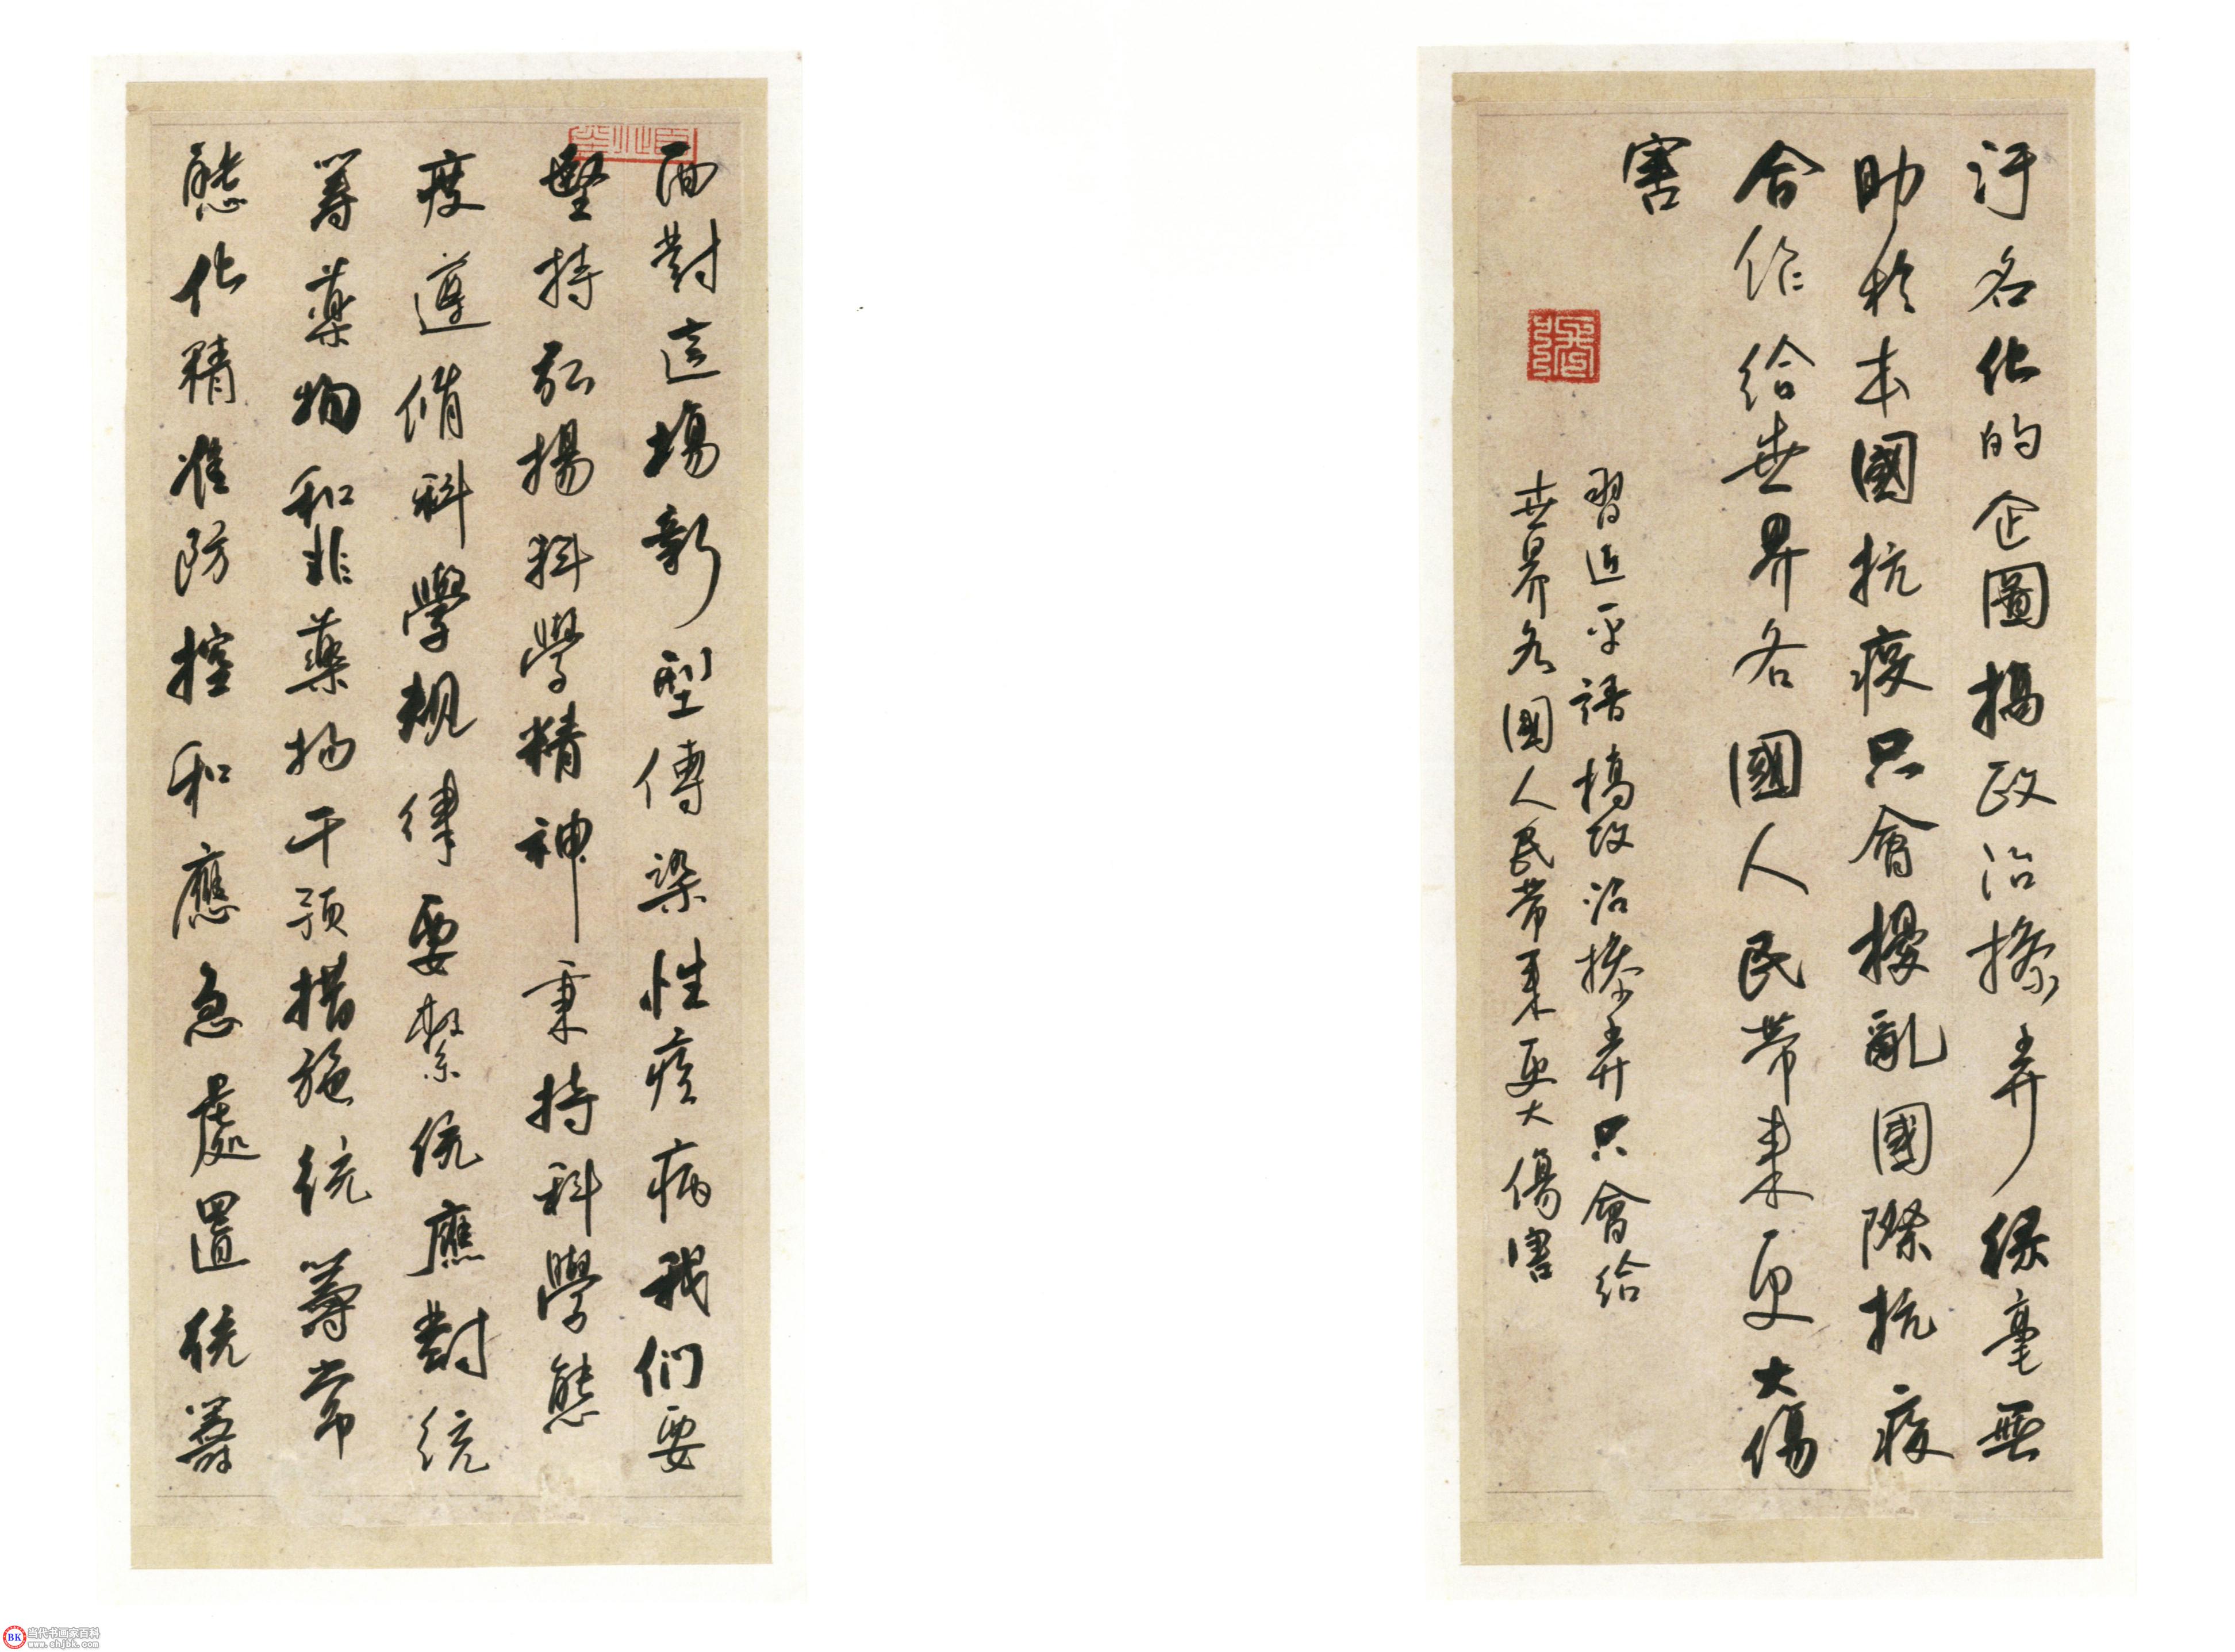 汙名化的企圖搞政治操弄絲毫無
助於本國抗疫只會擾亂國際抗疫
合作給世界各國人民帶來更大傷
害
習近平語搞政治操弄只會給
世界各國人民帶來更大傷害
面對這場新型傳染性疾病我们要
堅持弘揚科學精神秉持科學態
度遵循科學規律要繫統應對統
籌藥物和非藥物干预措施统籌常
態化精准防控和應急處置统籌
当代书画家百科
www.shjbk.com